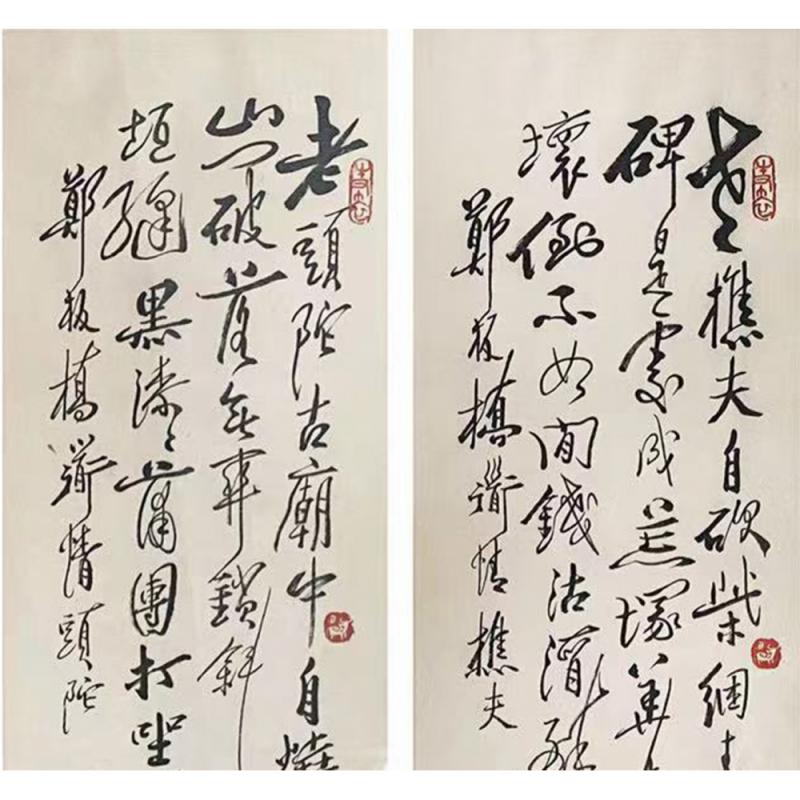 老樵夫自砍柴綑
碑是處成荒塚華
壞倒不如閒錢沽酒醉
鄭板橋道情樵夫
老頭陀古廟中自燒
山門破落無關鎖斜
垣縫黑漆々蒲團打坐
鄭板橋道情頭陀